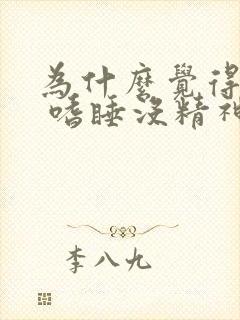 為什麼覺得
嗜睡沒精神
李八九